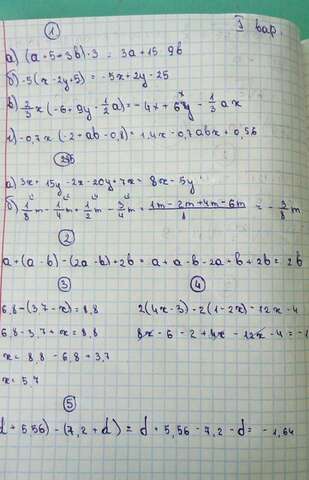 ① I вар.
а) (a + 5 + 3b) · 3 = 3a + 15 9b
б) -5(x - 2y + 5) = -5x + 2y - 25
в) 2/3 x(-6 + 9y - 1/2 a) = -4x + 6xy - 1/3 ax
г) -0,7x(-2 + ab - 0,8) = 1,4x - 0,7abx + 0,56
а) 3x + 15y - 2x - 20y + 7x = 8x - 5y
б) 1/8 m - 1/4 m + 1/2 m - 3/4 m = (1m - 2m + 4m - 6m)/8 = - 3/8 m
②
a + (a - b) - (2a - b) + 2b = a + a - b - 2a + b + 2b = 2b
③ ④
6,8 - (3,7 - x) = 8,8 2(4x - 3) - 2(1 - 2x) - 12x - 4
6,8 - 3,7 + x = 8,8 8x - 6 - 2 + 4x - 12x - 4 = -1
x = 8,8 - 6,8 + 3,7
x = 5,7
⑤
d + 5,56) - (7,2 + d) = d + 5,56 - 7,2 - d = - 1,64